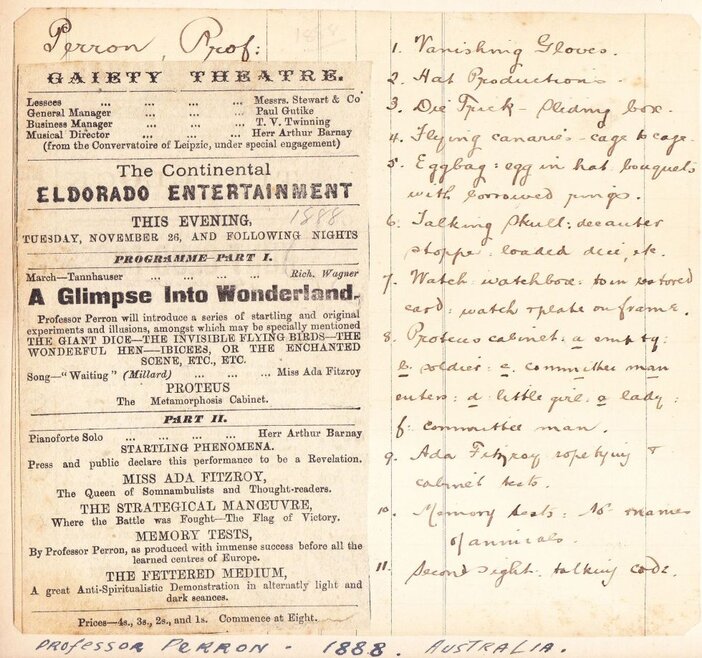 Perron, Prof:
GAIETY THEATRE.
Lessees ... ... ... ... Messrs. Stewart & Co
General Manager ... ... ... Paul Gutike
Business Manager ... ... ... T. V. Twinning
Musical Director ... ... ... Herr Arthur Barnay
(from the Convervatoire of Leipzic, under special engagement)
The Continental
ELDORADO ENTERTAINMENT
1888
THIS EVENING,
TUESDAY, NOVEMBER 26, AND FOLLOWING NIGHTS
PROGRAMME—PART I.
March—Tannhauser ... ... ... ... Rich. Wagner
A Glimpse Into Wonderland.
Professor Perron will introduce a series of startling and original
experiments and illusions, amongst which may be specially mentioned
THE GIANT DICE—THE INVISIBLE FLYING BIRDS—THE
WONDERFUL HEN—IBICEES, OR THE ENCHANTED
SCENE, ETC., ETC.
Song—"Waiting" (Millard) ... ... ... Miss Ada Fitzroy
PROTEUS
The Metamorphosis Cabinet.
PART II.
Pianoforte Solo ... ... ... ... Herr Arthur Barnay
STARTLING PHENOMENA.
Press and public declare this performance to be a Revelation.
MISS ADA FITZROY,
The Queen of Somnambulists and Thought-readers.
THE STRATEGICAL MANŒUVRE,
Where the Battle was Fought—The Flag of Victory.
MEMORY TESTS,
By Professor Perron, as produced with immense success before all the
learned centres of Europe.
THE FETTERED MEDIUM,
A great Anti-Spiritualistic Demonstration in alternatly light and
dark seances.
Prices—4s., 3s., 2s., and 1s. Commence at Eight.
1. Vanishing Gloves.
2. Hat Productions.
3. Die Trick - sliding box.
4. Flying canaries - cage to cage.
5. Eggbag: egg in hat. bouquets
with borrowed rings.
6. Talking Skull: decanter
stopper: loaded dice, etc.
7. Watch watchbox: torn restored
card: watch & plate on frame.
8. Proteus cabinet: a empty:
b soldier: c committee man
enters: d little girl: e lady:
f. committee man.
9. Ada Fitzroy ropetying &
cabinet tests.
10. Memory tests: Nos & names
of animals.
11. Second sight. talking code.
PROFESSOR PERRON - 1888. AUSTRALIA.